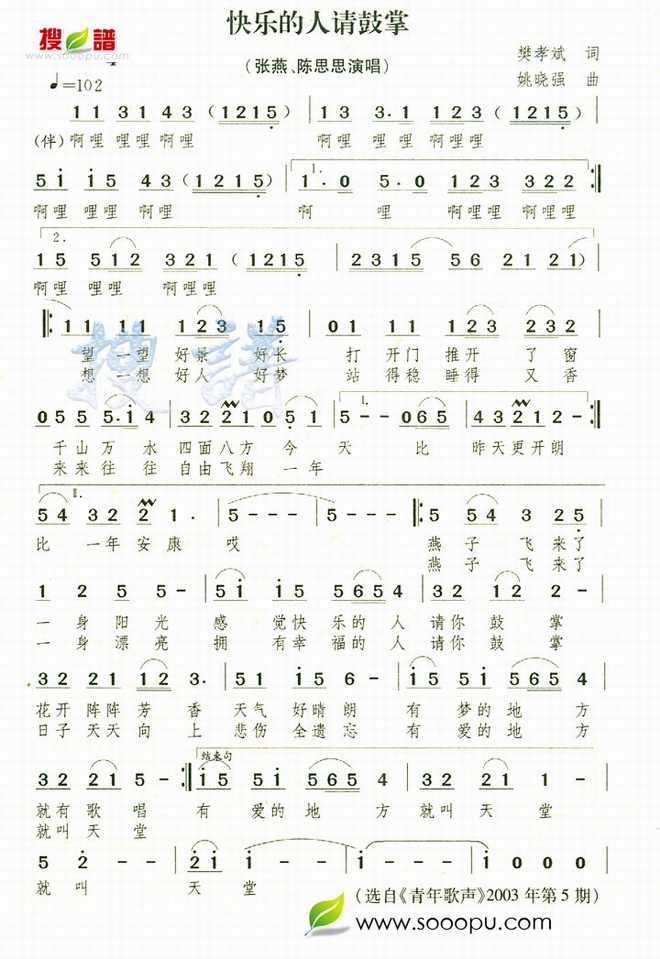 快乐的人请鼓掌
搜谱
www.sooopu.com
(张燕、陈思思演唱)
樊孝斌 词
姚晓强 曲
♩=102
1 1 3 1 4 3 (1 2 1 5) | 1 3 3· 1 1 2 3 (1 2 1 5) |
(伴) 啊哩 哩哩 啊哩 啊哩 哩哩 啊哩哩
5 i i 5 4 3 (1 2 1 5) | 1.
1· 0 5· 0 1 2 3 3 2 2 :||
啊哩 哩哩 啊哩 啊 哩 啊哩哩 啊哩哩
2.
1 5 5 1 2 3 2 1 (1 2 1 5 | 2 3 1 5 5 6 2 1 2 1) |
啊哩 哩哩 啊哩哩
||: 1 1 1 1 1 2 3 1 5 | 0 1 1 1 1 2 3 3 2 |
望一望 好景 好长 打 开门 推开 了 窗
想一想 好人 好梦 站 得稳 睡得 又 香
0 5 5 5· i 4 | 3 2 2 1 0 5 1 | I.
5 - - 0 6 5 | 4 3 2 1 2 - :||
千山 万 水 四面八方 今 天 比 昨天更开朗
来来 往 往 自由飞翔 一年
II.
5 4 3 2 2 1· | 5 - - - | 5 - - - ||: 5 5 4 3 2 5 |
比 一年 安 康 哎 燕 子 飞 来了
燕 子 飞 来了
1 2 5 5 - | 5 i i 5 5 6 5 4 | 3 2 1 2 2 - |
一 身 阳 光 感 觉快 乐的 人 请你 鼓 掌
一 身 漂 亮 拥 有幸 福的 人 请你 鼓 掌
3 2 2 1 1 2 3· | 5 1 i 5 6 - | i 5 5 i 5 6 5 4 |
花开 阵阵 芳 香 天气 好晴 朗 有 梦的 地 方
日子 天天 向 上 悲伤 全遗 忘 有 爱的 地 方
结束句
3 2 2 1 5 - :|| i 5 5 i 5 6 5 4 | 3 2 2 1 1 - |
就有 歌 唱 有 爱的 地 方 就叫 天 堂
就叫 天 堂
5 2 - - | 2 i i - - | i - - - | i 0 0 0 ||
就 叫 天 堂
(选自《青年歌声》2003年第5期)
www.sooopu.com